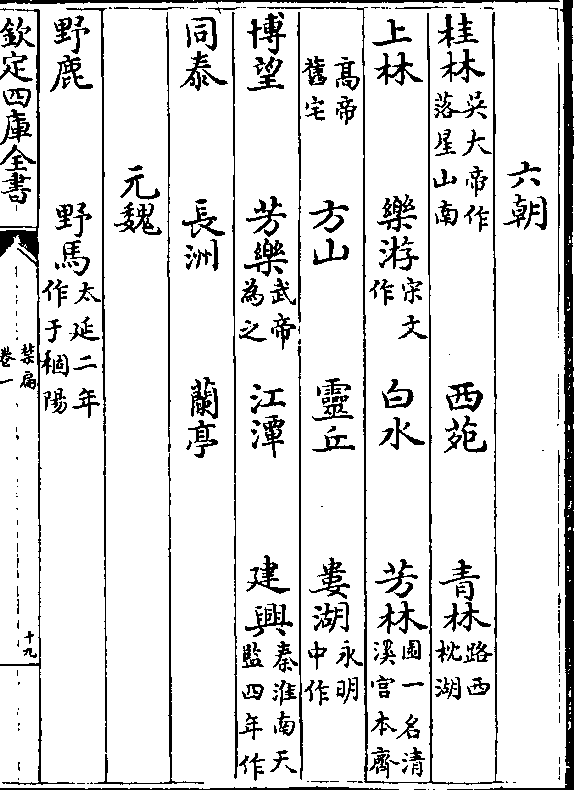 六朝
桂林吳大帝作落星山南 西苑 青林路西枕湖
上林 樂游宋文作 白水 芳林園一名清溪宫本齊
高帝舊宅 方山 靈丘 婁湖永明中作
博望 芳樂武帝為之 江潭 建興秦淮南天監四年作
同泰 長洲 蘭亭
元魏
野鹿 野馬太延二年作于稒陽
欽定四庫全書
禁扁
卷一
十九